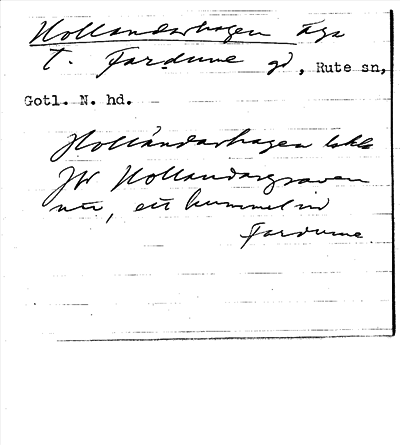 Hollandarhagen äga
t. Fardume gd, Rute sn,
Gotl. N. hd.
Hollandarhagen
Jfr Hollandargraven
ett kummel vid
Fardume